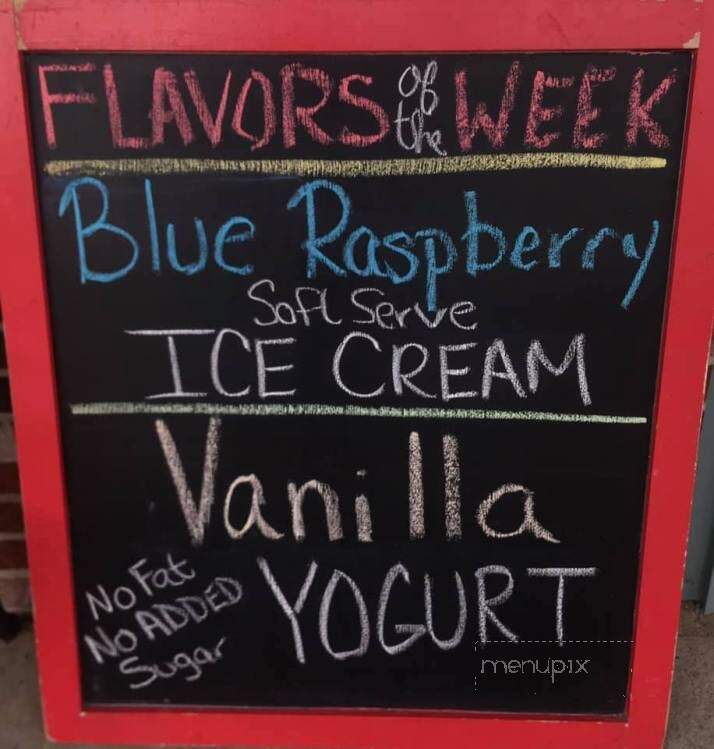 FLAVORS of the WEEK
Blue Raspberry
Soft Serve
ICE CREAM
Vanilla
No Fat
No ADDED
Sugar
YOGURT
menupix